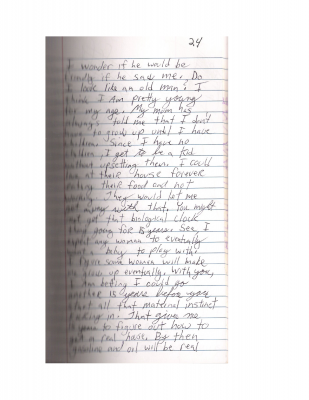 24
I wonder if he would be
if he saw me. Do
I look like an old man? I
think I am pretty young
for my age. My mom has
always told me that I don't
have to grow up until I have
children. Since I have no
children, I get to be a kid
upsetting them. I could
at their house forever
eating their food and not
They would let me
get away with that. You might
get that biological clock
going for 15 years. See, I
expect any woman to eventually
a baby to play with.
I some woman will make
grow up eventually. With you,
I am betting I could go
another 15 years before you
all that maternal instinct
kicking in. That gives me
years to figure out how to
get a real house. By then
gasoline and oil will be real